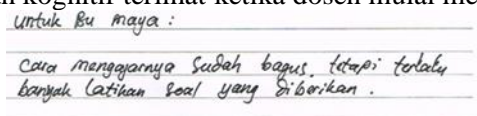 kognitif terlihat ketika dosen mulai
untuk Bu maya :
Cara mengajarnya Sudah bagus, tetapi terlalu
banyak latihan soal yang diberikan .